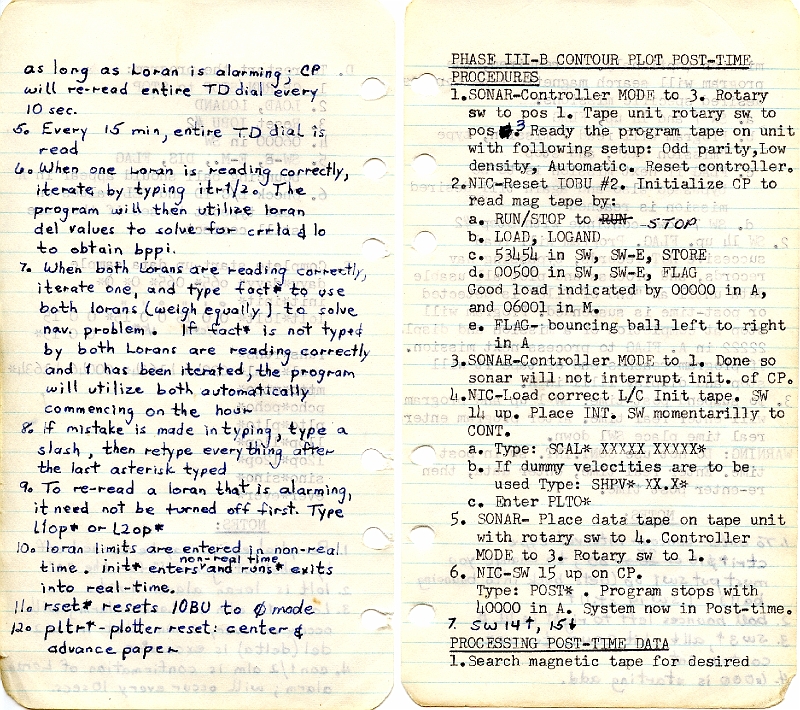 as long as Loran is alarming; CP
will re-read entire TD dial every
10 sec.
5. Every 15 min, entire TD dial is
read
6. When one Loran is reading correctly,
iterate by typing itr1/2*. The
program will then utilize loran
del values to solve for crrla & lo
to obtain bppi.
7. When both Lorans are reading correctly,
iterate one, and type fact* to use
both lorans (weigh equally) to solve
nav. problem. If fact* is not typed
by both Lorans are reading correctly
and 1 has been iterated, the program
will utilize both automatically
commencing on the hour
8. If mistake is made in typing, type a
slash, then retype everything after
the last asterisk typed
9. To re-read a loran that is alarming,
it need not be turned off first. Type
L1op* or L2op*
10. loran limits are entered in non-real
time. init* enters non-real time and runs* exits
into real-time.
11. rset* resets IOBU to Ø mode
12. pltr*-plotter reset: center &
advance paper
PHASE III-B CONTOUR PLOT POST-TIME
PROCEDURES
1.SONAR-Controller MODE to 3. Rotary
sw to pos 1. Tape unit rotary sw to
pos 3 Ready the program tape on unit
with following setup: Odd parity,Low
density, Automatic. Reset controller.
2.NIC-Reset IOBU #2. Initialize CP to
read mag tape by:
a. RUN/STOP to RUN STOP
b. LOAD, LOGAND
c. 53454 in SW, SW-E, STORE
d. 00500 in SW, SW-E, FLAG
Good load indicated by 00000 in A,
and 06001 in M.
e. FLAG- bouncing ball left to right
in A
3.SONAR-Controller MODE to 1. Done so
sonar will not interrupt init. of CP.
4.NIC-Load correct L/C Init tape. SW
14 up. Place INT. SW momentarilly to
CONT.
a. Type: SCAL* XXXXX XXXXX*
b. If dummy velocities are to be
used Type: SHPV* XX.X*
c. Enter PLTO*
5. SONAR- Place data tape on tape unit
with rotary sw to 4. Controller
MODE to 3. Rotary sw to 1.
6. NIC-SW 15 up on CP.
Type: POST* . Program stops with
40000 in A. System now in Post-time.
7. SW 14↑, 15↓
PROCESSING POST-TIME DATA
1.Search magnetic tape for desired